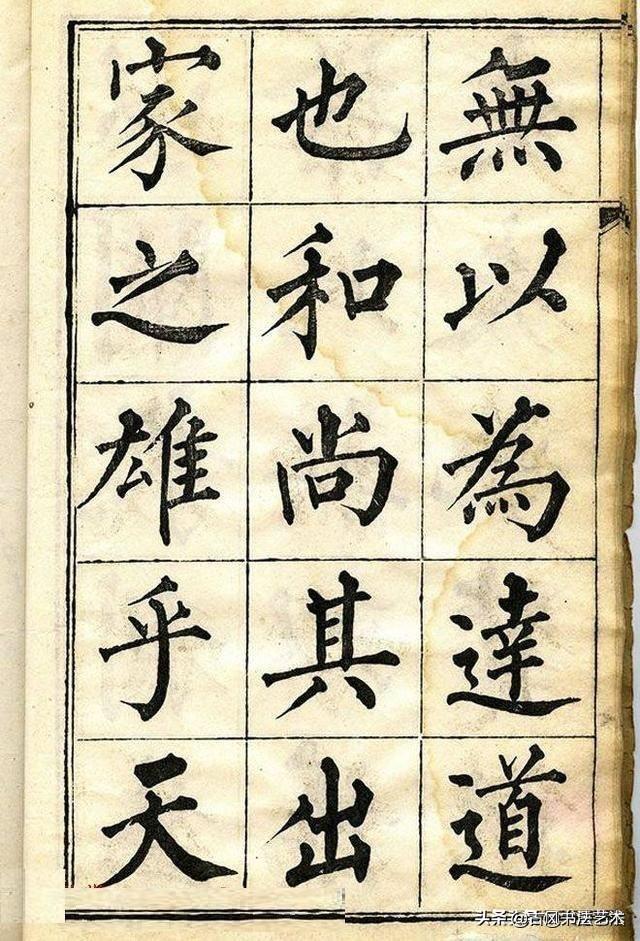 無以為達道
也和尚其出
家之雄乎天
头条@古风书法艺术